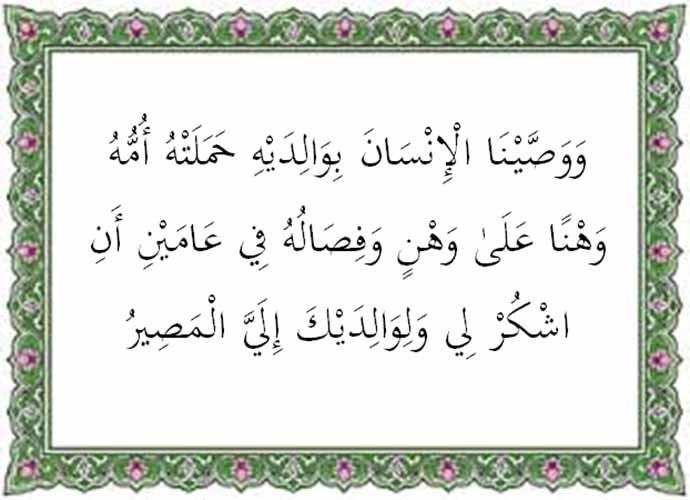 وَوَصَّيْنَا الْإِنْسَانَ بِوَالِدَيْهِ حَمَلَتْهُ أُمُّهُ
وَهْنًا عَلَىٰ وَهْنٍ وَفِصَالُهُ فِي عَامَيْنِ أَنِ
اشْكُرْ لِي وَلِوَالِدَيْكَ إِلَيَّ الْمَصِيرُ